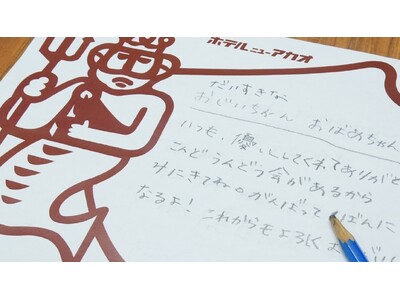 ホテルニューアカオ
だいすきな
おじいちゃん おばあちゃん
いつも、優しくしてくれてありがと
こんどうんどう会があるから
みにきてね。がんばって ちばんに
なるよ! これからもよろしく